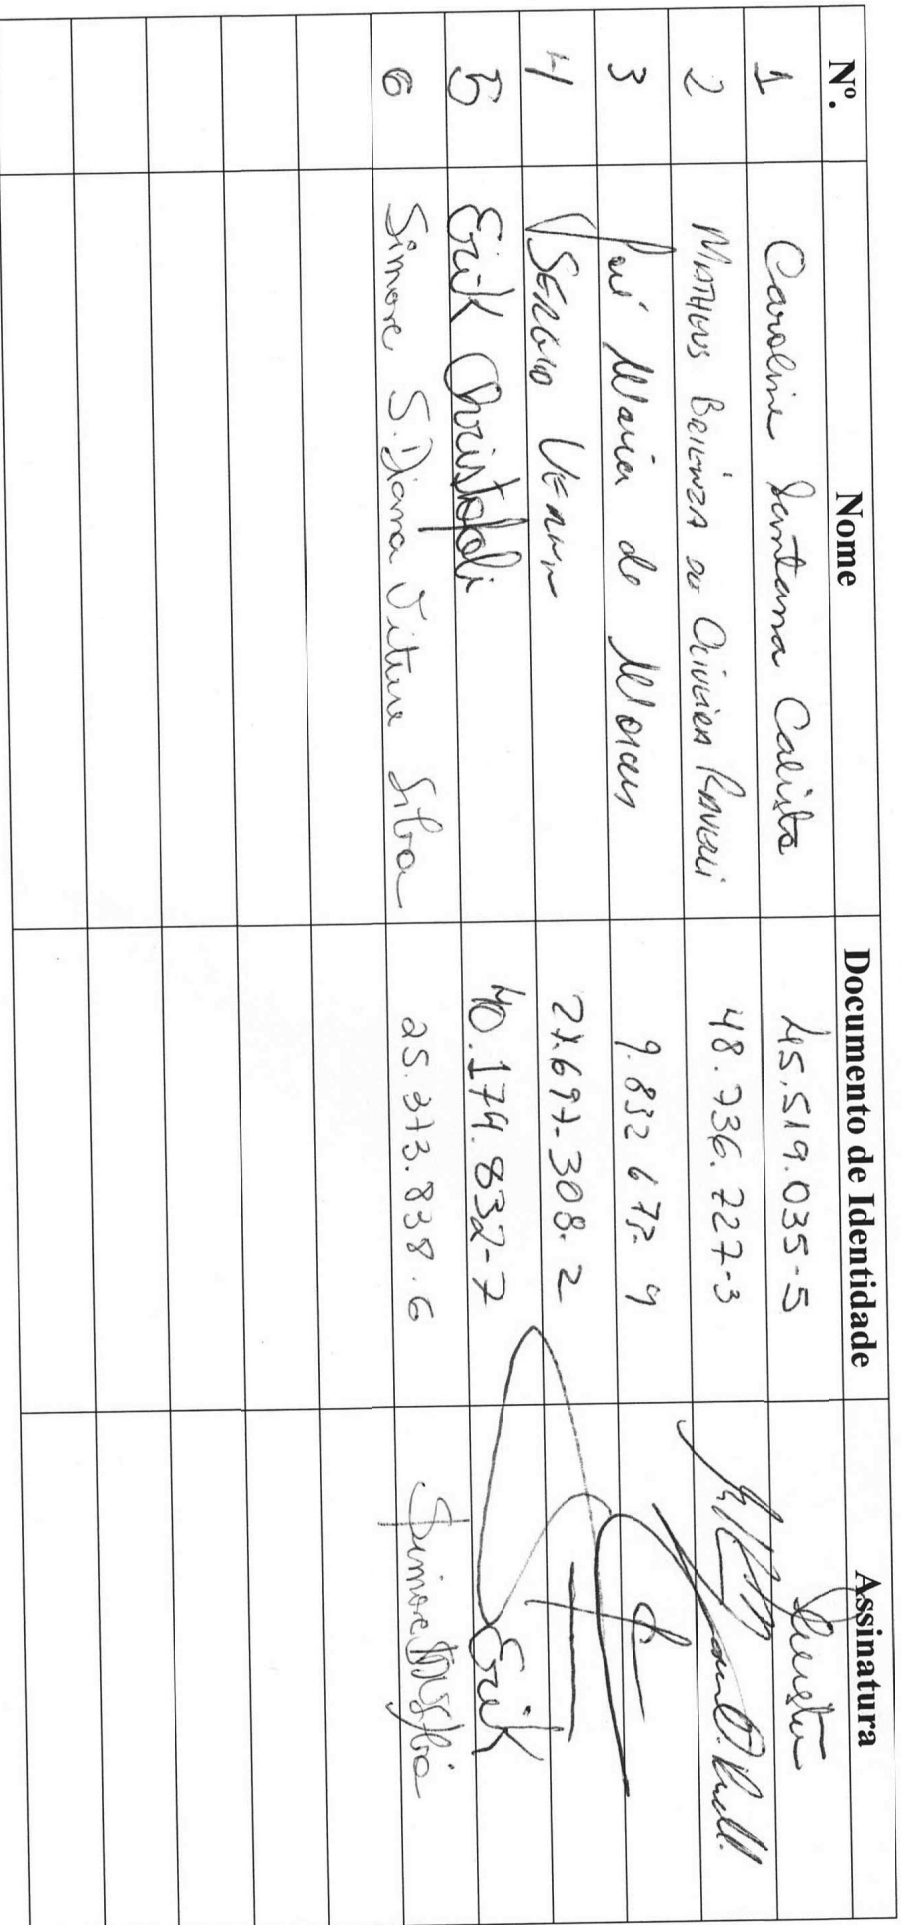 Nº. Nome Documento de Identidade Assinatura
1 Caroline Santana Calisto 45.519.035-5
2 MATHEUS BRIGNZA DE OLIVEIRA 48.936.227-3
3 José Maria de Moraes 9.832 672-9
4 SERGIO 27.697-308.2
5 Erik Christofoli 40.174.832-7 Erik
6 Simone S. Diana Silva 25.373.838.6 Simone